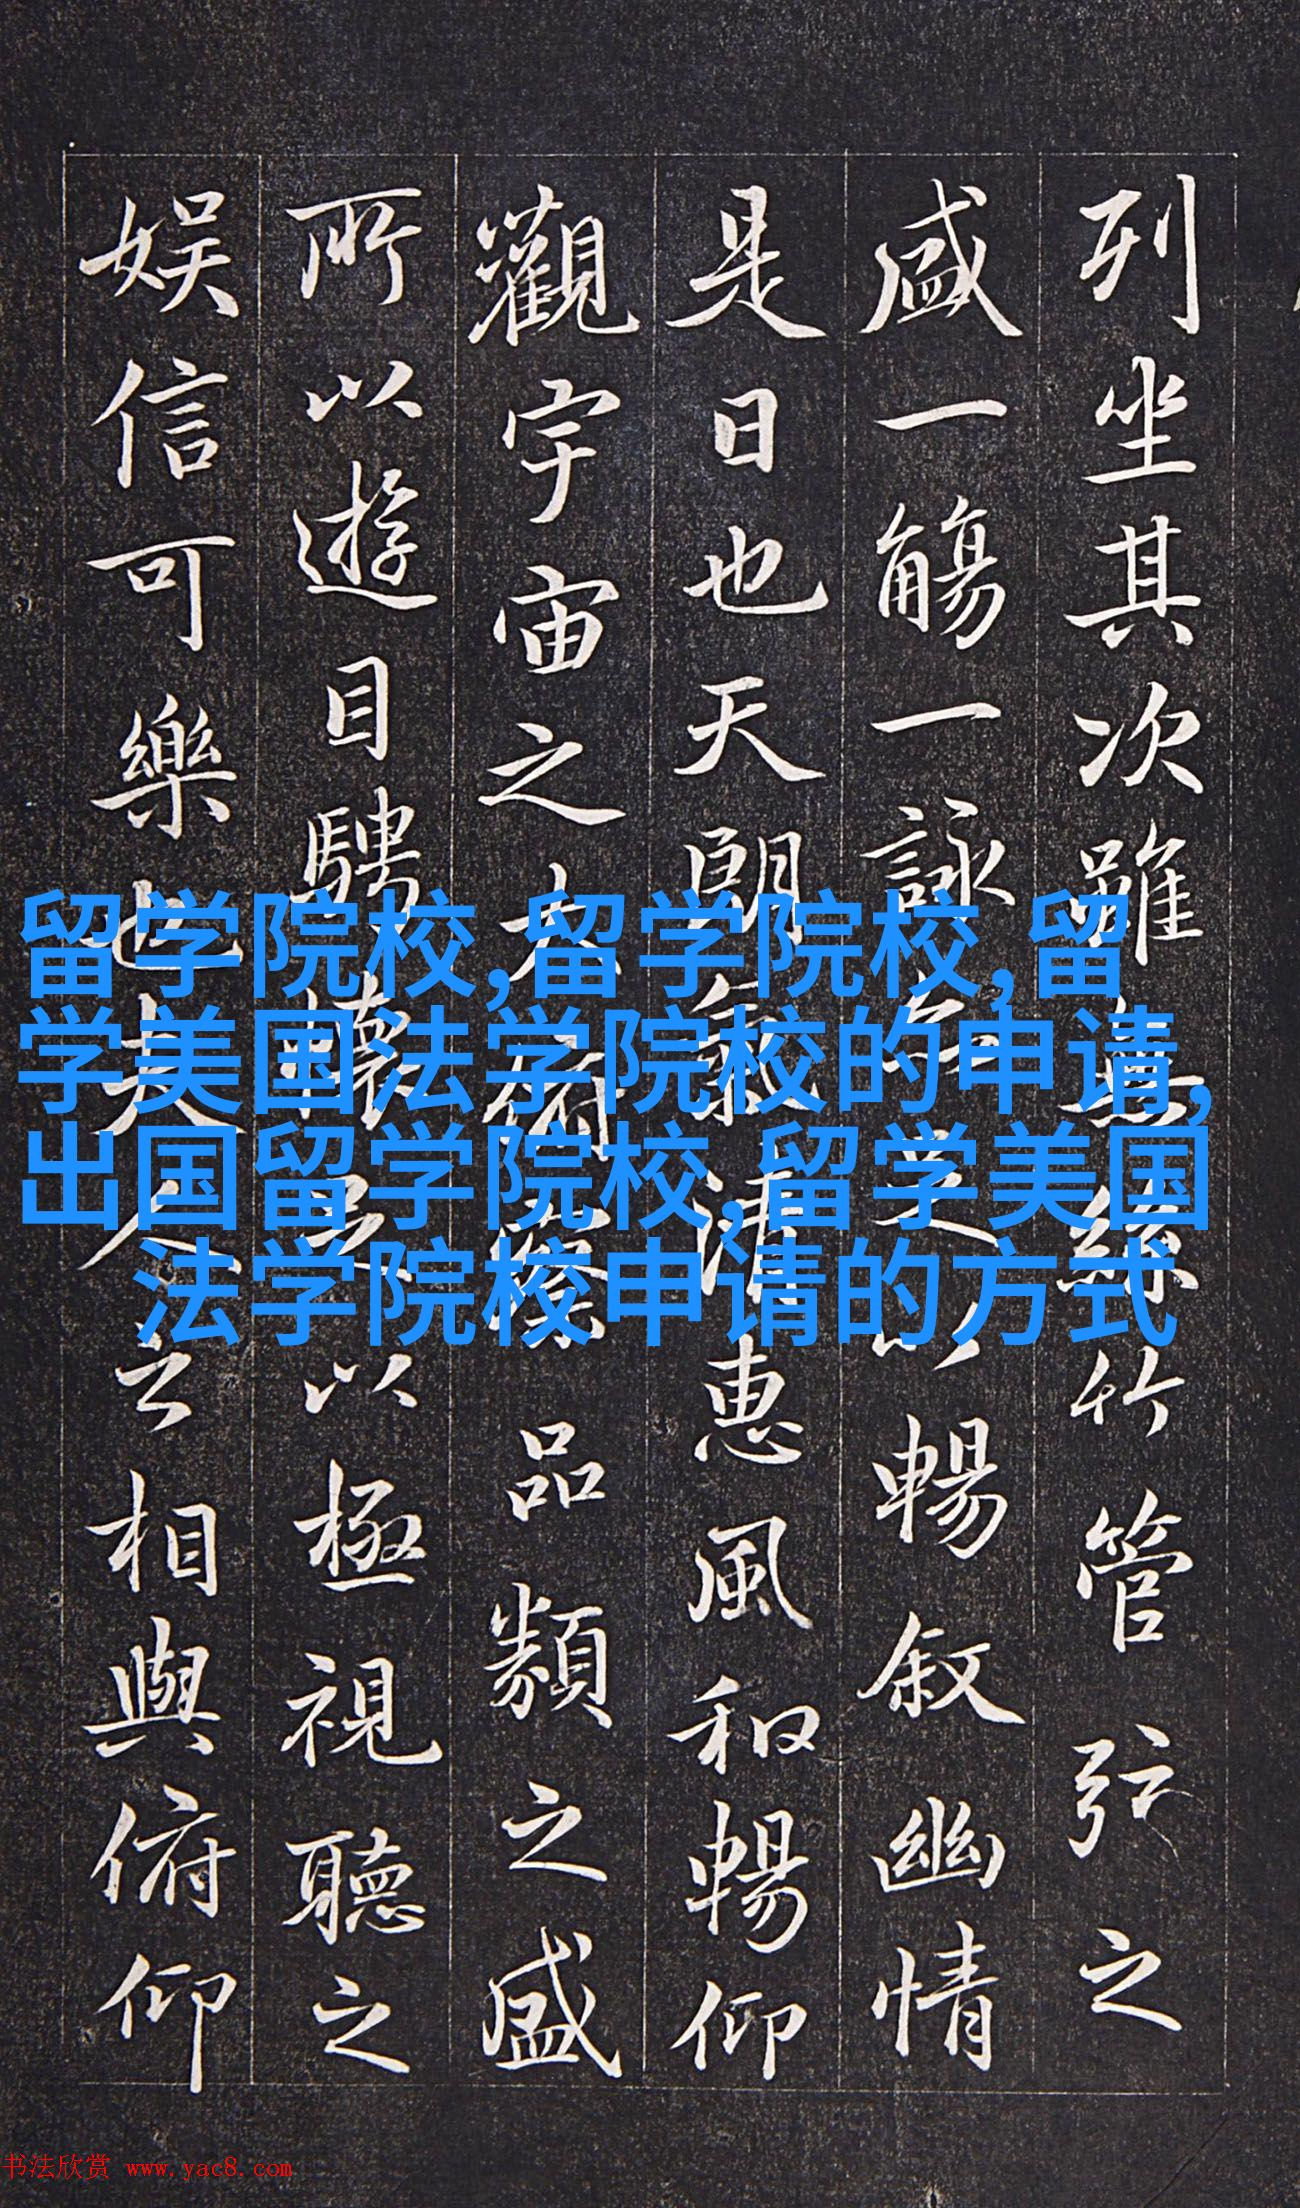 列坐其次雖無絲竹管弦之
盛一觴一詠亦足以暢敘幽情
是日也天朗氣清惠風和暢仰
觀宇宙之大俯察品類之盛
所以遊目騁懷足以極視聽之
娛信可樂也夫人之相與俯仰
留学院校,留学院校,留
学美国法学院校的申请,
出国留学院校,留学美国
法学院校申请的方式
书法欣赏 www.yac8.com